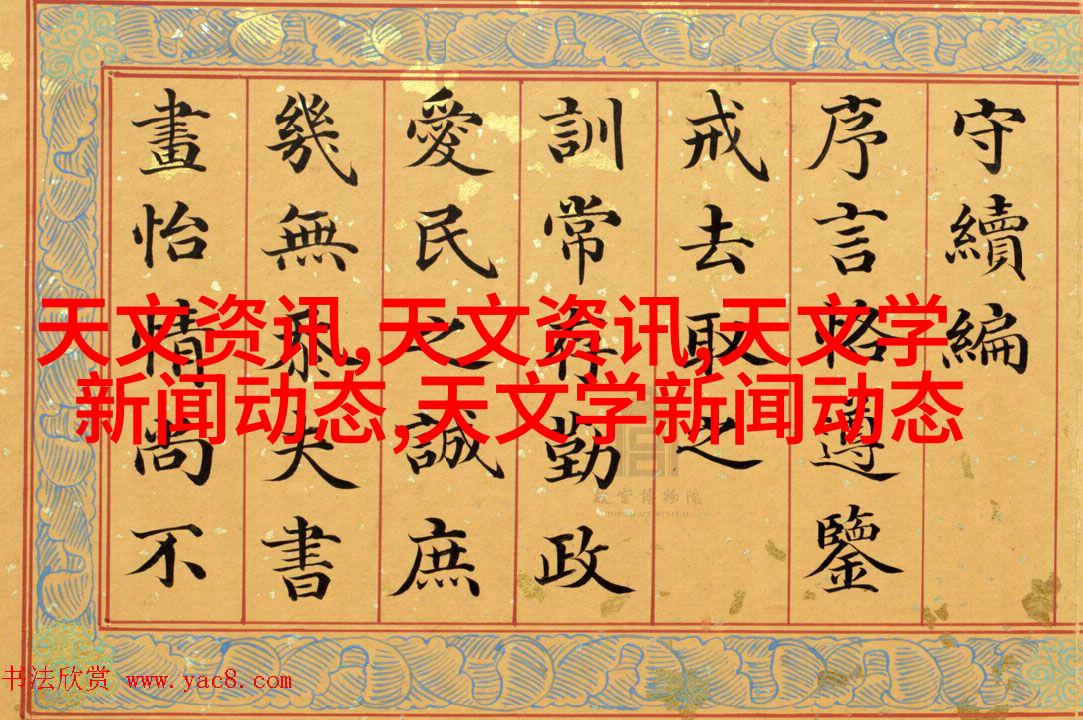 守續編
序言恪遵鑒
戒去取之
訓常存勤政
愛民之誠庶
幾無忝夫書
畫怡情尚不
天文资讯,天文资讯,天文学
新闻动态,天文学新闻动态
故宫博物院
THE PALACE MUSEUM
书法欣赏 www.yac8.com